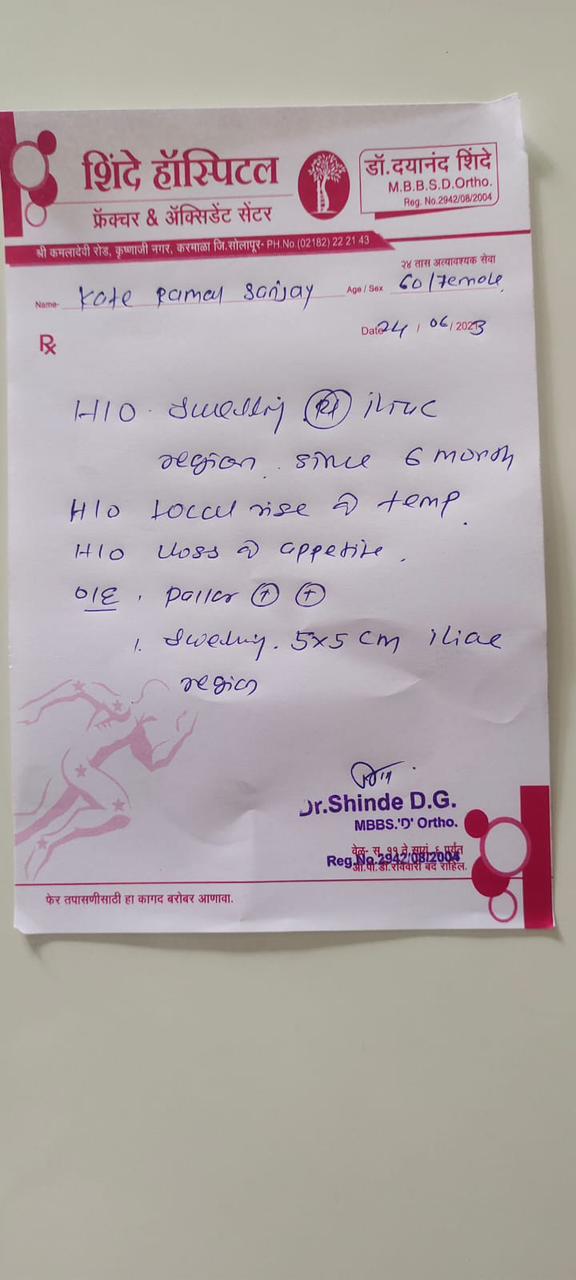 शिंदे हॉस्पिटल
फ्रॅक्चर & ॲक्सिडेंट सेंटर
डॉ.दयानंद शिंदे
M.B.B.S.D.Ortho.
Reg. No.2942/08/2004
श्री कमलादेवी रोड, कृष्णाजी नगर, करमाळा जि.सोलापूर- PH.No.(02182) 22 21 43
२४ तास अत्यावश्यक सेवा
Name- Kote Ramal Sanjay Age / Sex 60/Female
Date 24 / 06 / 2023
Rx
H/O swelling (Rt) iliac
region since 6 month
H/O local rise temp.
H/O loss appetite.
O/E. Pallor ⊕ ⊕
1. Swelling. 5x5 cm iliac
region
Dr.Shinde D.G.
MBBS.'D' Ortho.
वेळ- स. ११ ते सायं. ६ पर्यंत
Reg.No.2942/08/2004
ओ.पी.डी.रविवारी बंद राहिल.
फेर तपासणीसाठी हा कागद बरोबर आणावा.